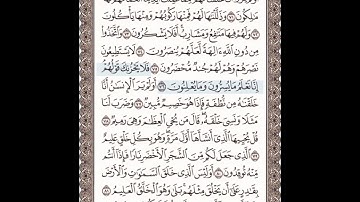 مَٰلِكُونَ ٧١ وَذَلَّلْنَٰهَا لَهُمْ فَمِنْهَا رَكُوبُهُمْ وَمِنْهَا يَأْكُلُونَ ٧٢
وَلَهُمْ فِيهَا مَنَٰفِعُ وَمَشَارِبُ أَفَلَا يَشْكُرُونَ ٧٣ وَٱتَّخَذُوا۟
مِن دُونِ ٱللَّهِ ءَالِهَةً لَّعَلَّهُمْ يُنصَرُونَ ٧٤ لَا يَسْتَطِيعُونَ
نَصْرَهُمْ وَهُمْ لَهُمْ جُندٌ مُّحْضَرُونَ ٧٥ فَلَا يَحْزُنكَ قَوْلُهُمْ
إِنَّا نَعْلَمُ مَا يُسِرُّونَ وَمَا يُعْلِنُونَ ٧٦ أَوَلَمْ يَرَ ٱلْإِنسَٰنُ أَنَّا
خَلَقْنَٰهُ مِن نُّطْفَةٍ فَإِذَا هُوَ خَصِيمٌ مُّبِينٌ ٧٧ وَضَرَبَ لَنَا
مَثَلًا وَنَسِىَ خَلْقَهُۥ قَالَ مَن يُحْىِ ٱلْعِظَٰمَ وَهِىَ رَمِيمٌ ٧٨
قُلْ يُحْيِيهَا ٱلَّذِىٓ أَنشَأَهَآ أَوَّلَ مَرَّةٍ وَهُوَ بِكُلِّ خَلْقٍ عَلِيمٌ
٧٩ ٱلَّذِى جَعَلَ لَكُم مِّنَ ٱلشَّجَرِ ٱلْأَخْضَرِ نَارًا فَإِذَآ أَنتُم
مِّنْهُ تُوقِدُونَ ٨٠ أَوَلَيْسَ ٱلَّذِى خَلَقَ ٱلسَّمَٰوَٰتِ وَٱلْأَرْضَ
بِقَٰدِرٍ عَلَىٰٓ أَن يَخْلُقَ مِثْلَهُم بَلَىٰ وَهُوَ ٱلْخَلَّٰقُ ٱلْعَلِيمُ ٨١